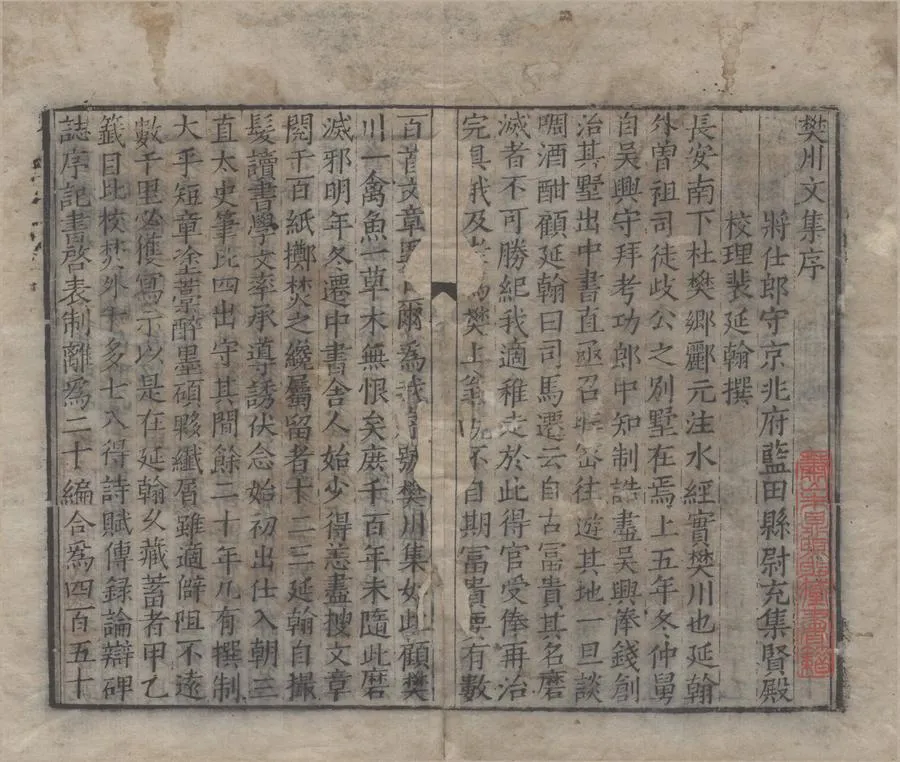 樊川文集序
將仕郎守京兆府藍田縣尉充集賢殿
校理裴延翰撰
長安南下杜樊鄉酈元注水經實樊川也延翰
外曾祖司徒歧公之別墅在焉上五年冬仲舅
自吳興守拜考功郎中知制誥盡吳興俸錢創
治其墅出中書直亟召昵密往遊其地一旦談
啁酒酣顧延翰曰司馬遷云自古富貴其名磨
滅者不可勝紀我適稚走於此得官受俸再治
完具俄及老為樊上翁既不自期富貴要有數
百首文章異日爾為我序號樊川集如此顧樊
川一禽魚一草木無恨矣庶千百年未隨此磨
滅邪明年冬遷中書舍人始少得恙盡搜文章
閱千百紙擲焚之纔屬留者十二三延翰自撮
髮讀書學文率承導誘伏念始初出仕入朝三
直太史筆比四出守其間餘二十年凡有撰制
大手短章塗藁醉墨碩夥纖屑雖適僻阻不遠
數千里必獲寫示以是在延翰久藏蓄者甲乙
籖目比校焚外十多七八得詩賦傳録論辯碑
誌序記書啓表制離為二十編合為四百五十